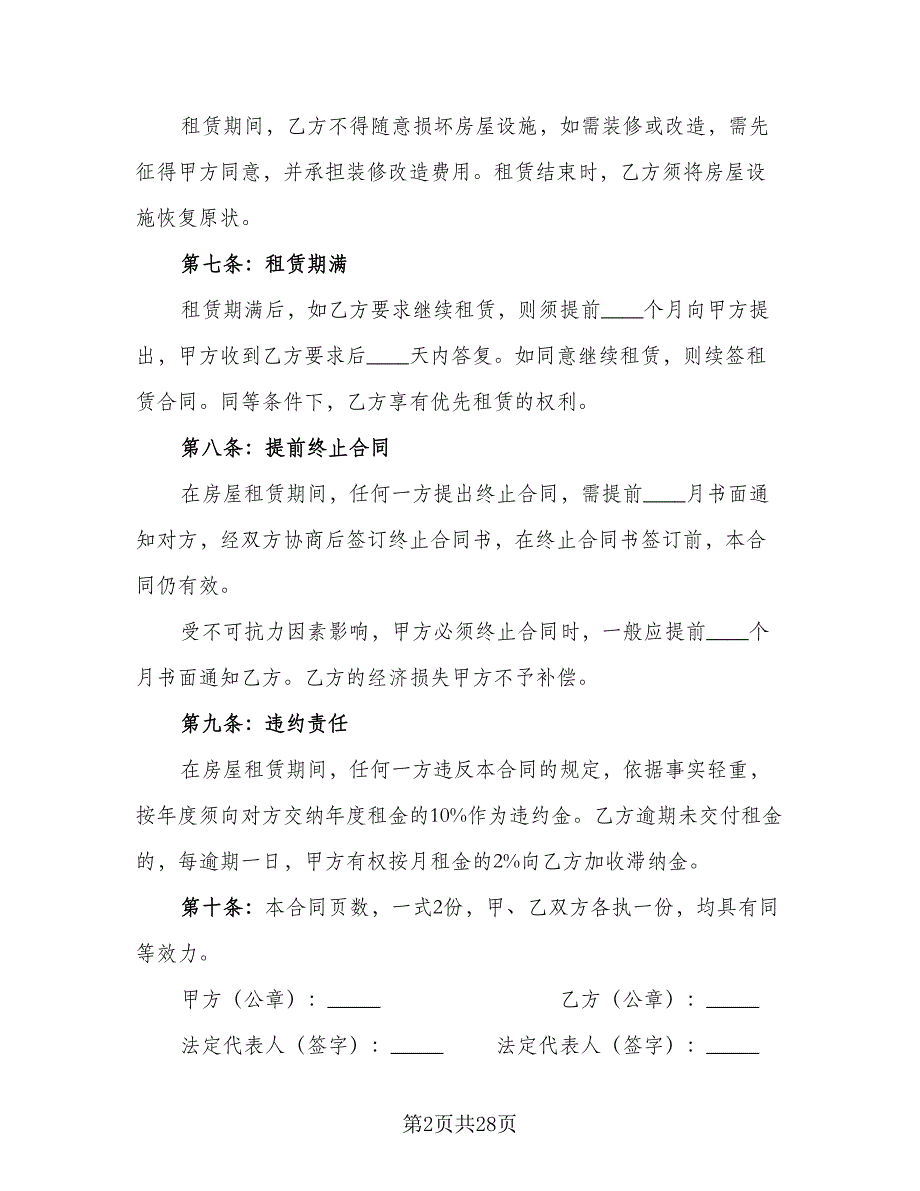 租赁期间，乙方不得随意损坏房屋设施，如需装修或改造，需先
征得甲方同意，并承担装修改造费用。租赁结束时，乙方须将房屋设
施恢复原状。
第七条：租赁期满
租赁期满后，如乙方要求继续租赁，则须提前____个月向甲方提
出，甲方收到乙方要求后____天内答复。如同意继续租赁，则续签租
赁合同。同等条件下，乙方享有优先租赁的权利。
第八条：提前终止合同
在房屋租赁期间，任何一方提出终止合同，需提前____月书面通
知对方，经双方协商后签订终止合同书，在终止合同书签订前，本合
同仍有效。
受不可抗力因素影响，甲方必须终止合同时，一般应提前____个
月书面通知乙方。乙方的经济损失甲方不予补偿。
第九条：违约责任
在房屋租赁期间，任何一方违反本合同的规定，依据事实轻重，
按年度须向对方交纳年度租金的10%作为违约金。乙方逾期未交付租金
的，每逾期一日，甲方有权按月租金的2%向乙方加收滞纳金。
第十条：本合同页数，一式2份，甲、乙双方各执一份，均具有同
等效力。
甲方（公章）：_____ 乙方（公章）：_____
法定代表人（签字）：_____ 法定代表人（签字）：_____
第2页共28页